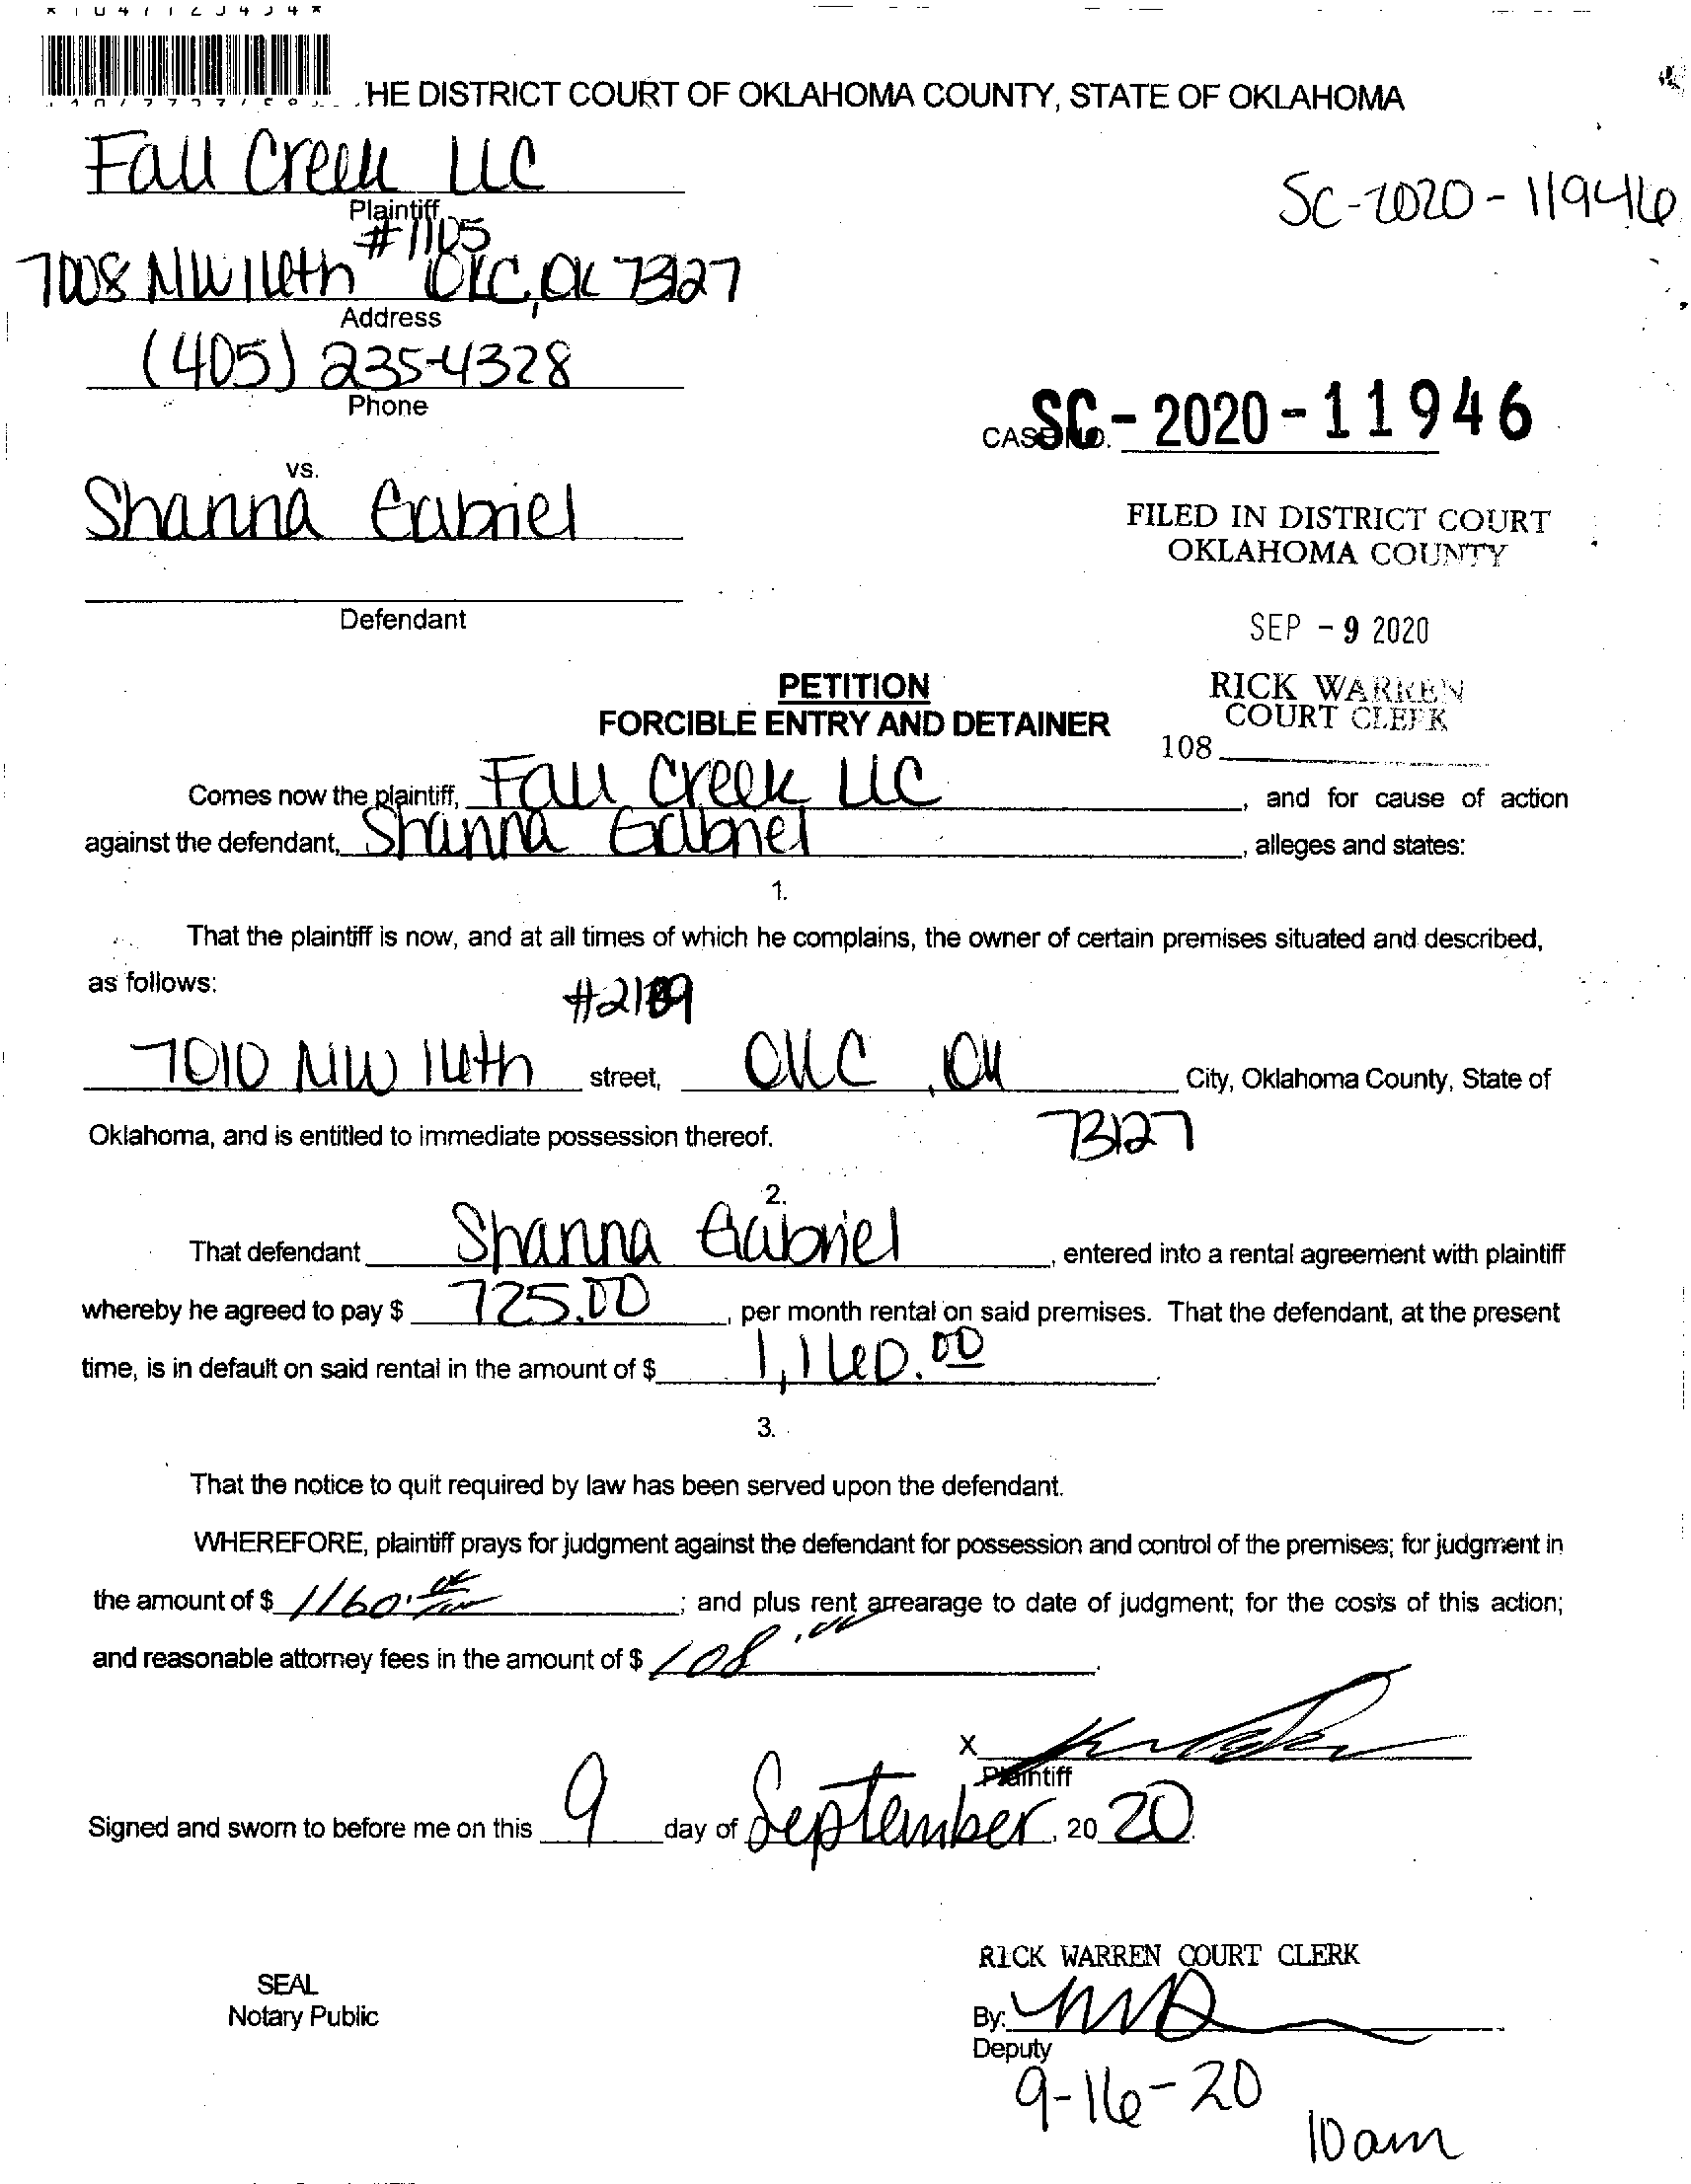 HE DISTRICT COURT OF OKLAHOMA COUNTY, STATE OF OKLAHOMA
Fall Creek LLC
Plaintiff
SC-2020-11946
#1105
7008 NW 16th OKC, OK 73127
Address
(405) 235-4328
Phone
CASE NO. SC-2020-11946
vs.
Shanna Gabriel
FILED IN DISTRICT COURT
OKLAHOMA COUNTY
Defendant
SEP - 9 2020
PETITION
RICK WARREN
COURT CLERK
FORCIBLE ENTRY AND DETAINER
108
Comes now the plaintiff, Fall Creek LLC, and for cause of action
against the defendant, Shanna Gabriel, alleges and states:
1.
That the plaintiff is now, and at all times of which he complains, the owner of certain premises situated and described,
as follows:
7010 NW 16th street, OKC, OK City, Oklahoma County, State of
Oklahoma, and is entitled to immediate possession thereof. 73127
2.
That defendant Shanna Gabriel, entered into a rental agreement with plaintiff
whereby he agreed to pay $ 725.00, per month rental on said premises. That the defendant, at the present
time, is in default on said rental in the amount of $ 1,160.00.
3.
That the notice to quit required by law has been served upon the defendant.
WHEREFORE, plaintiff prays for judgment against the defendant for possession and control of the premises; for judgment in
the amount of $ 1160.00; and plus rent arrearage to date of judgment; for the costs of this action;
and reasonable attorney fees in the amount of $ 108.00.
X
Plaintiff
Signed and sworn to before me on this 9 day of September, 20 20.
RICK WARREN COURT CLERK
SEAL
Notary Public
By:
Deputy
9-16-20
10am